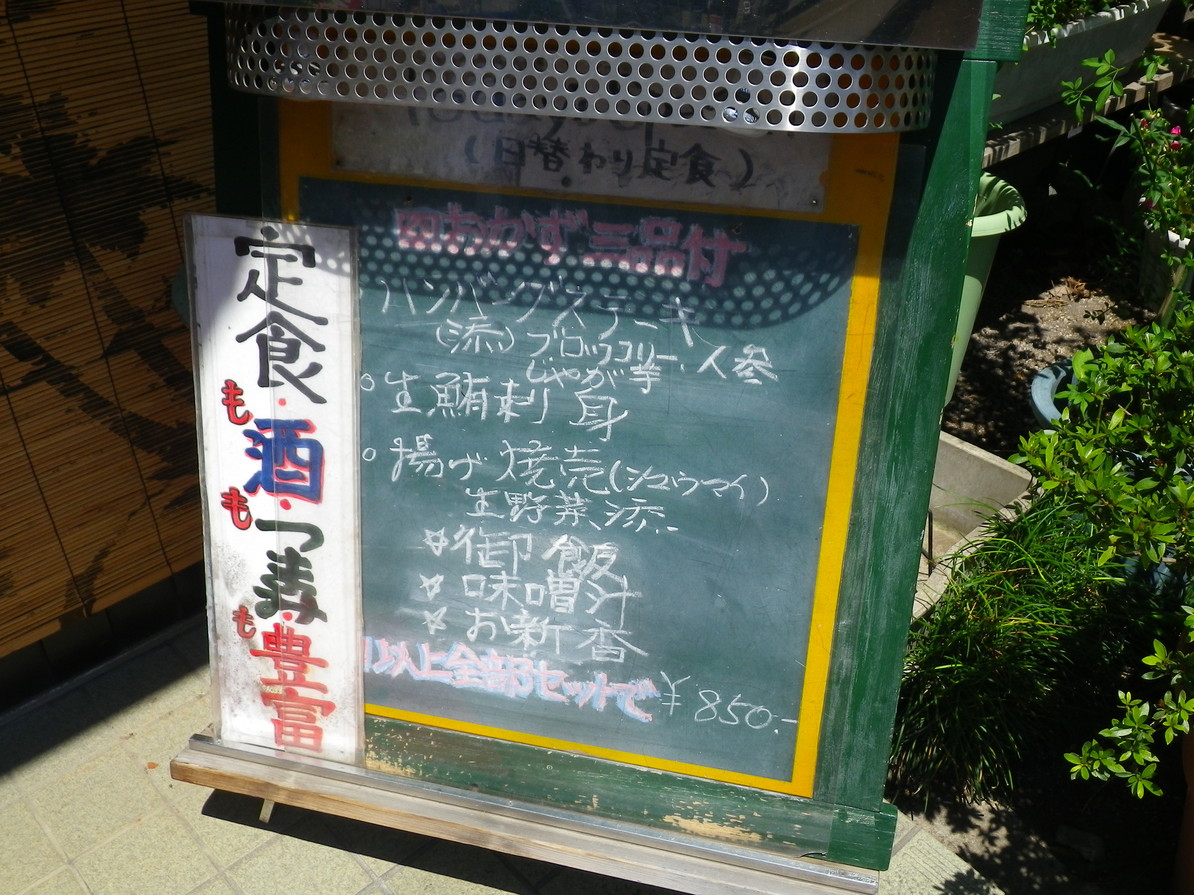 (日替わり定食)
おかず三品付
ハンバーグステーキ
(添)ブロッコリー・人参
じゃが芋
○生鮪刺身
○揚げ焼売(シュウマイ)
生野菜添
☆御飯
☆味噌汁
☆お新香
以上全部セットで ¥850.-
定食も・酒も・つまみも・豊富